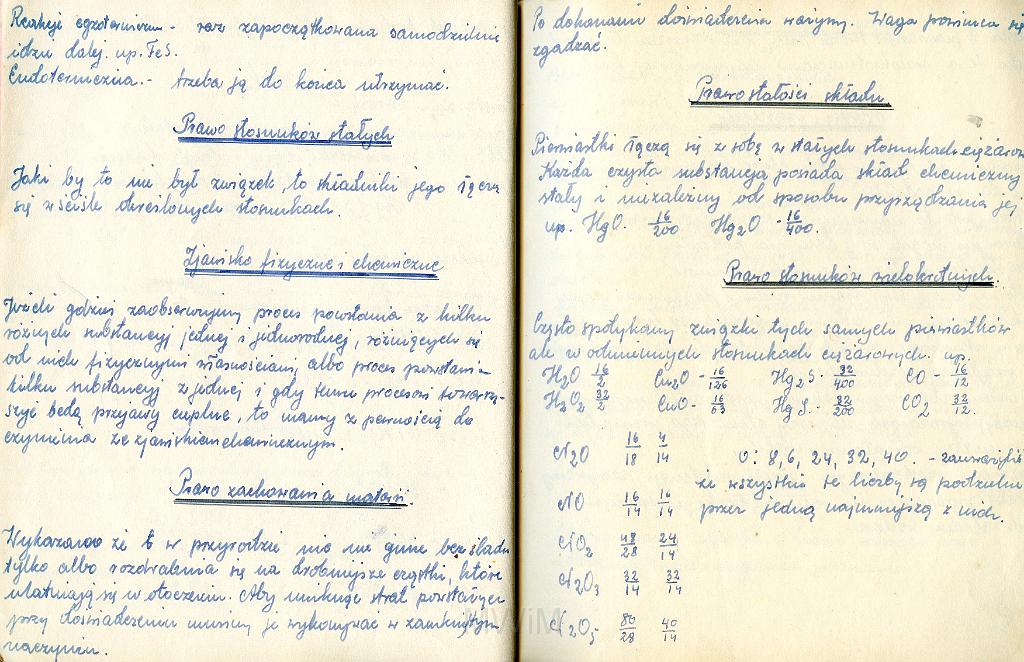 Reakcje egzotermiczna - raz zapoczątkowana samodzielnie
idzie dalej. np. FeS.
Endotermiczna. - trzeba ją do końca utrzymać.
Prawo stosunków stałych
Jaki by to nie był związek, to składniki jego łączą
się w ściśle określonych stosunkach.
Zjawisko fizyczne i chemiczne
Jeżeli gdzieś zaobserwujemy proces powstania z kilku
różnych substancyj jednej i jednorodnej, różniących się
od nich fizycznymi własnościami, albo proces powstania
kilku substancyj z jednej i gdy temu procesowi towarzy-
szyć będą przyjawy cieplne, to mamy z pewnością do
czynienia ze zjawiskiem chemicznym.
Prawo zachowania materii.
Wykazano że w przyrodzie nic nie ginie bez śladu
tylko albo rozdrabnia się na drobniejsze cząstki, które
ulatniają się w otoczeniu. Aby uniknąć strat powstałych
przy doświadczeniu musimy je wykonywać w zamkniętym
naczyniu.
Po dokonaniu doświadczenia ważymy. Waga powinna się
zgadzać.
Prawo stałości składu
Pierwiastki łączą się z sobą w stałych stosunkach ciężarow.
Każda czysta substancja posiada skład chemiczny
stały i niezależny od sposobu przyrządzania jej
np. HgO. 16/200 Hg2O - 16/400.
Prawo stosunków wielokrotnych.
Często spotykamy związki tych samych pierwiastków
ale w odmiennych stosunkach ciężarowych. np.
H2O 16/2 Cu2O - 16/126 Hg2S - 32/400 CO - 16/12
H2O2 32/2 CuO - 16/63 HgS. - 32/200 CO2 32/12.
N2O 16/18 4/14 O: 8, 6, 24, 32, 40. - zauważyliś
że wszystkie te liczby są podzielne
NO 16/14 16/14 przez jedną najmniejszą z nich.
NO2 48/28 24/14
N2O3 32/14 32/14
N2O5 80/28 40/14
MWiM